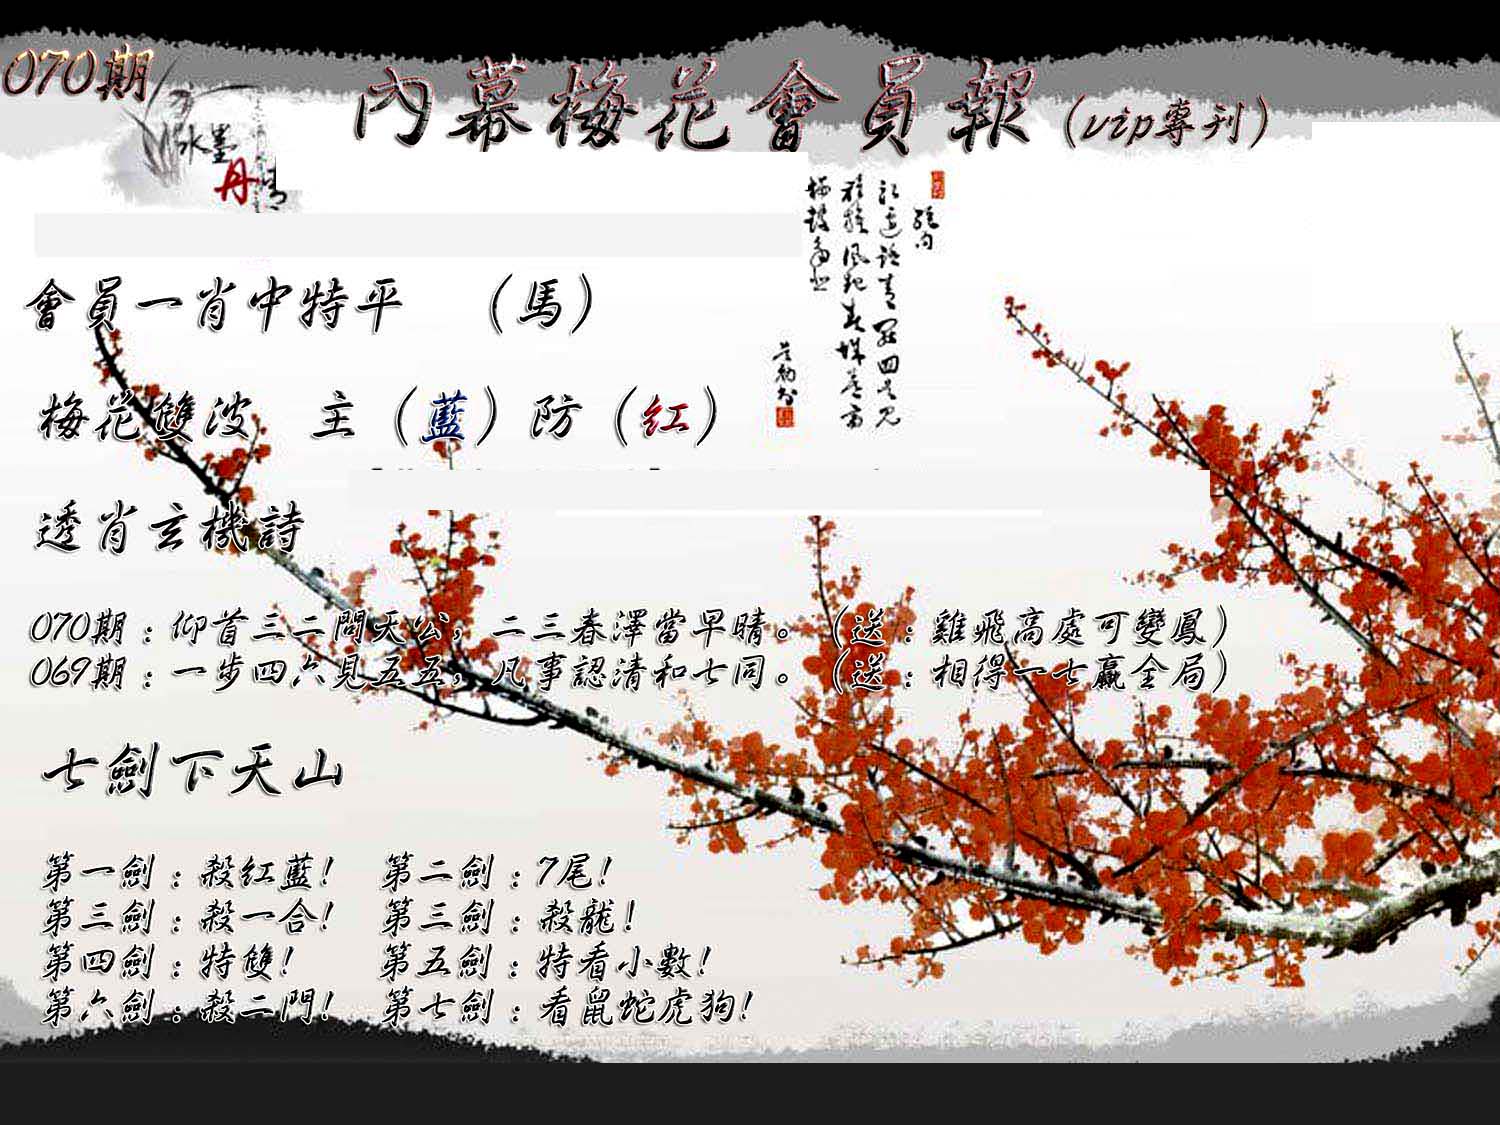 070期
內幕梅花會員報（vip專刊）
水墨
丹青
會員一肖中特平　（馬）
梅花雙波　主（藍）防（紅）
透肖玄機詩
070期：仰首三二問天公，二三春澤當早晴。（送：雞飛高處可變鳳）
069期：一步四六見五五，凡事認清和七同。（送：相得一七贏全局）
七劍下天山
第一劍：殺紅藍！　第二劍：7尾！
第三劍：殺一合！　第三劍：殺龍！
第四劍：特雙！　第五劍：特看小數！
第六劍：殺二門！　第七劍：看鼠蛇虎狗！